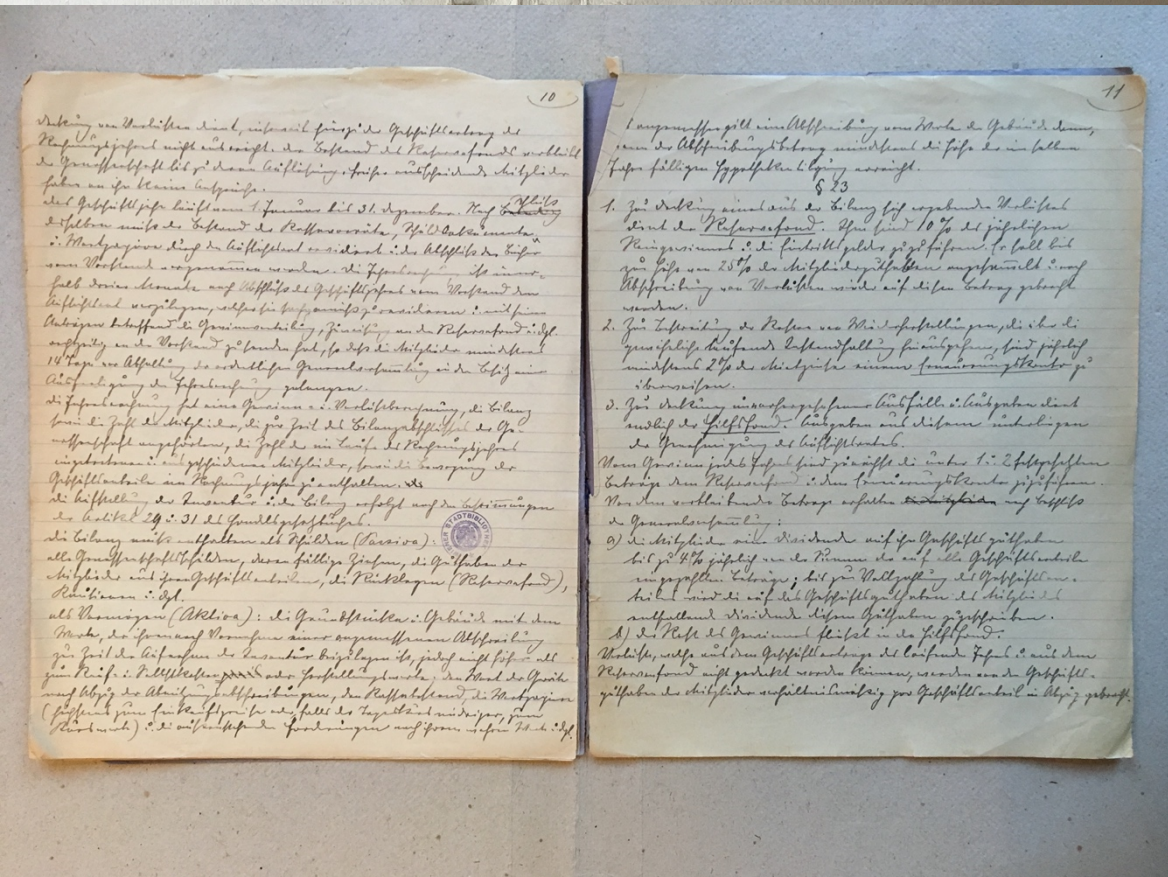 10
deckung von Verlusten dient, insoweit hiezu der Geschäftsertrag des
Rechnungsjahres nicht ausreicht. Der Bestand des Reservefonds verbleibt
der Genossenschaft bis zu deren Auflösung. Früher ausscheidende Mitglieder
haben an ihn keine Ansprüche.
Das Geschäftsjahr läuft vom 1. Januar bis 31. Dezember. Nach Schluss
desselben muss der Bestand der Kassevorräte, Schulddokumente
u. Wertpapiere durch den Aufsichtsrat revidiert u. der Abschluss der Bücher
vom Vorstande vorgenommen werden. Die Jahresrechnung ist inner-
halb dreier Monate nach Abschluss des Geschäftsjahres vom Vorstand dem
Aufsichtsrat vorzulegen, welcher sie zu revidieren u. mit seinen
Anträgen betreffend die Gewinnverteilung, Zuweisung an den Reservefond u. dgl.
rechtzeitig an den Vorstand zu senden hat, so dass die Mitglieder mindestens
14 Tage vor Abhaltung der ordentlichen Generalversammlung in den Besitz einer
Ausfertigung der Jahresrechnung gelangen.
Die Jahresrechnung hat eine Gewinn- u. Verlustberechnung, die Bilanz
sowie die Zahl der Mitglieder, die zur Zeit des Bilanzabschlusses der Ge-
nossenschaft angehörten, die Zahl der im Laufe des Rechnungsjahres
eingetretenen u. ausgeschiedenen Mitglieder, sowie die Bewegung der
Geschäftsanteile im Rechnungsjahr zu enthalten.
Die Aufstellung der Inventur u. der Bilanz erfolgt nach den Bestimmungen
der Artikel 29 u. 31 des Handelsgesetzbuches.
Die Bilanz muss enthalten als Schulden (Passiva):
alle Genossenschaftsschulden, deren fällige Zinsen, die Guthaben der
Mitglieder aus ihren Geschäftsanteilen, die Rücklagen (Reservefond),
Kautionen u. dgl.
als Vermögen (Aktiva): die Grundstücke u. Gebäude mit dem
Werte, der ihnen nach Vornahme einer angemessenen Abschreibung
zur Zeit der Aufnahme der Inventur beizulegen ist, jedoch nicht höher als
zum Kauf- u. Selbstkosten oder Herstellungswerte, den Wert der Geräte
nach Abzug der Abnützungsabschreibungen, den Kassabestand, die Wertpapiere
(höchstens zum Einkaufspreise oder, falls der Tageskurs niedriger, zum
Kurswerte) u. die ausstehenden Forderungen nach ihrem wahren Werte u. dgl.
11
angemessen gilt eine Abschreibung vom Werte der Gebäude dann,
wenn der Abschreibungsbetrag mindestens die Höhe der im selben
Jahre fälligen Hypothekentilgung erreicht.
§ 23
1. Zur Deckung eines aus der Bilanz sich ergebenden Verlustes
dient der Reservefond. Ihm sind 10% des jährlichen
Reingewinnes u. die Eintrittsgelder zuzuführen. Er soll bis
zur Höhe von 25% der Mitgliederguthaben angesammelt u. nach
Abschreibung von Verlusten wieder auf diesen Betrag gebracht
werden.
2. Zur Bestreitung der Kosten von Wiederherstellungen, die über die
gewöhnliche laufende Instandhaltung hinausgehen, sind jährlich
mindestens 2% der Mietzinse einem Erneuerungskonto zu
überweisen.
3. Zur Deckung unvorhergesehener Ausfälle u. Ausgaben dient
endlich der Hilfsfond. Ausgaben aus diesem unterliegen
der Genehmigung des Aufsichtsrates.
Vom Gewinn jedes Jahres sind zunächst die unter 1 u. 2 festgesetzten
Beträge dem Reservefond u. dem Erneuerungskonto zuzuführen.
Von dem verbleibenden Betrage erhalten nach Beschluss
der Generalversammlung:
a) die Mitglieder eine Dividende auf ihr Geschäftsguthaben
bis zu 4% jährlich von der Summe der auf alle Geschäftsanteile
eingezahlten Beträge; bis zur Vollzahlung des Geschäftsan-
teiles wird die auf das Geschäftsguthaben des Mitgliedes
entfallende Dividende diesem Guthaben zugeschrieben.
b) der Rest des Gewinnes fliesst in den Hilfsfond.
Verluste, welche aus dem Geschäftsertrage des laufenden Jahres u. aus dem
Reservefond nicht gedeckt werden können, werden von den Geschäfts-
guthaben der Mitglieder verhältnismässig pro Geschäftsanteil in Abzug gebracht.